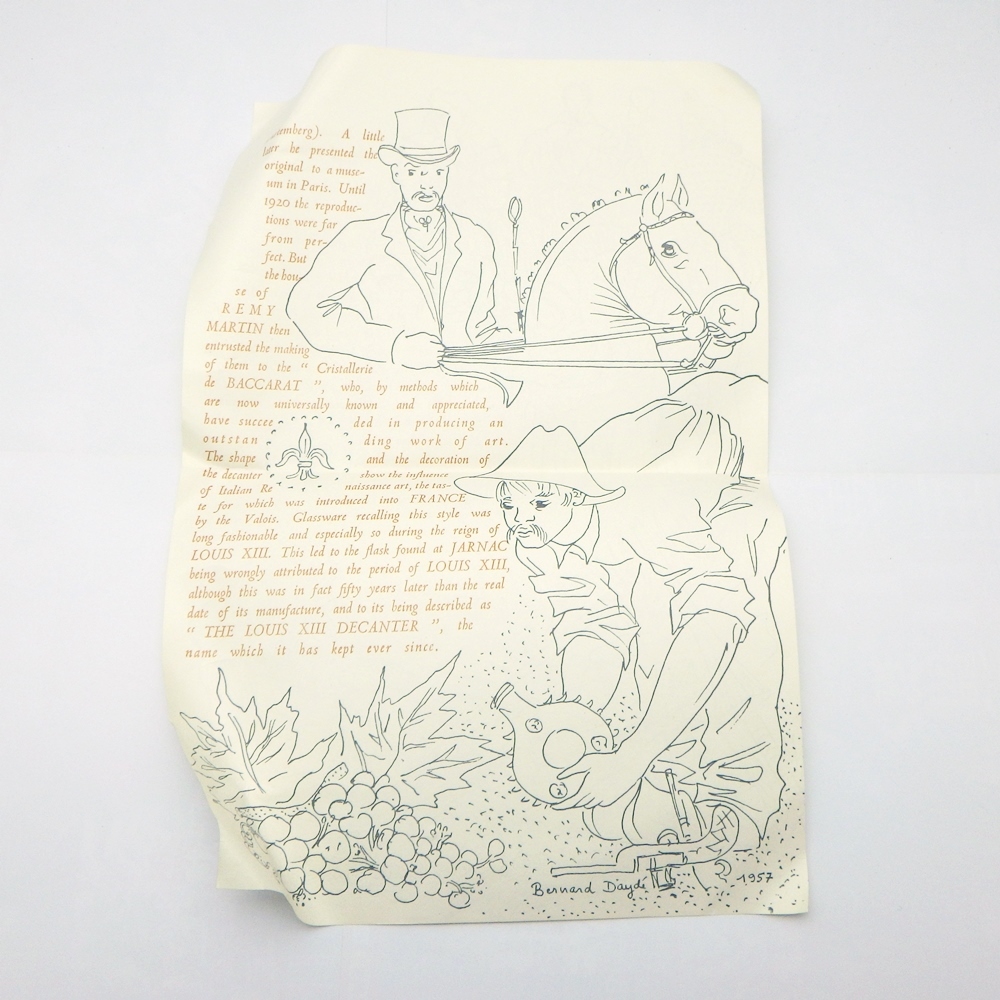 emberg). A little
later he presented the
original to a muse-
um in Paris. Until
1920 the reproduc-
tions were far
from per-
fect. But
the hou-
se of
REMY
MARTIN then
entrusted the making
of them to the “ Cristallerie
de BACCARAT ”, who, by methods which
are now universally known and appreciated,
have succee ded in producing an
outstan ding work of art.
The shape and the decoration of
the decanter show the influence
of Italian Re naissance art, the tas-
te for which was introduced into FRANCE
by the Valois. Glassware recalling this style was
long fashionable and especially so during the reign of
LOUIS XIII. This led to the flask found at JARNAC
being wrongly attributed to the period of LOUIS XIII,
although this was in fact fifty years later than the real
date of its manufacture, and to its being described as
“ THE LOUIS XIII DECANTER ”, the
name which it has kept ever since.
Bernard Daydé 1957